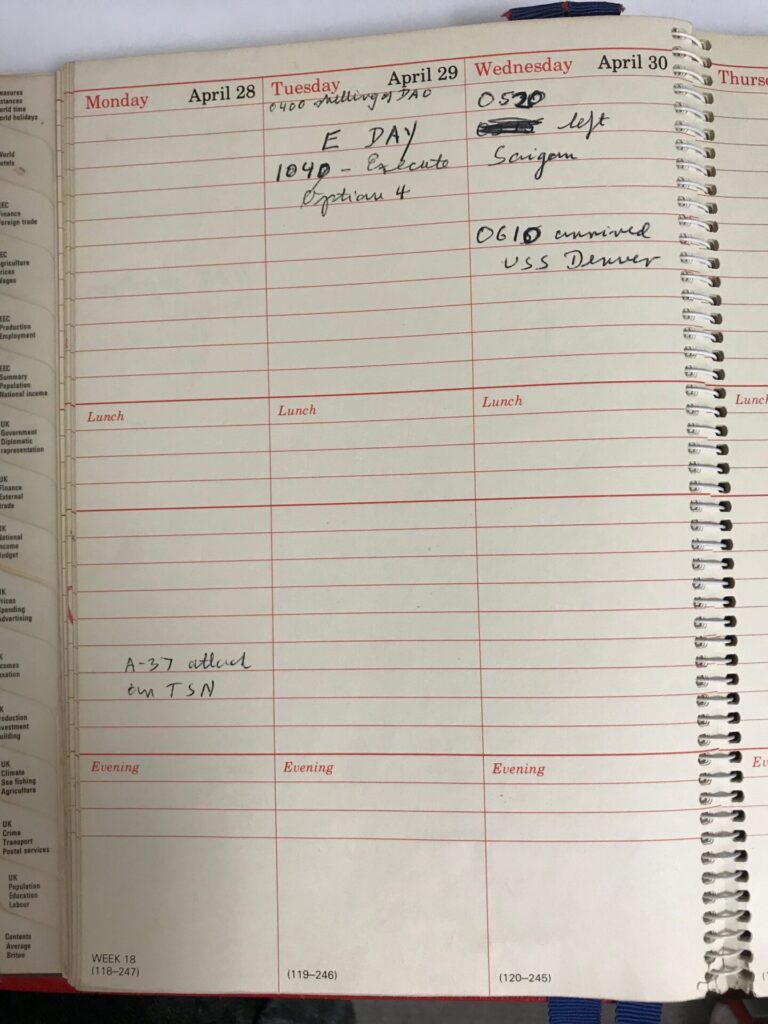 Measures
Distances
World time
World holidays
World
Hotels
EEC
Finance
Foreign trade
EEC
Agriculture
Prices
Wages
EEC
Production
Employment
EEC
Summary
Population
National income
UK
Government
Diplomatic
representation
UK
Finance
External
trade
UK
National
income
Budget
UK
Prices
Spending
Advertising
UK
Incomes
Taxation
UK
Production
Investment
Building
UK
Climate
Sea fishing
Agriculture
UK
Crime
Transport
Postal services
UK
Population
Education
Labour
Contents
Average
Briton
Monday April 28
Lunch
A-37 attack
on TSN
Evening
WEEK 18
(118–247)
Tuesday April 29
0400 shelling of DAO
E DAY
1040 - Execute
Option 4
Lunch
Evening
(119–246)
Wednesday April 30
0520
left
Saigon
0610 arrived
USS Denver
Lunch
Evening
(120–245)
Thurs
Lunch
Ev